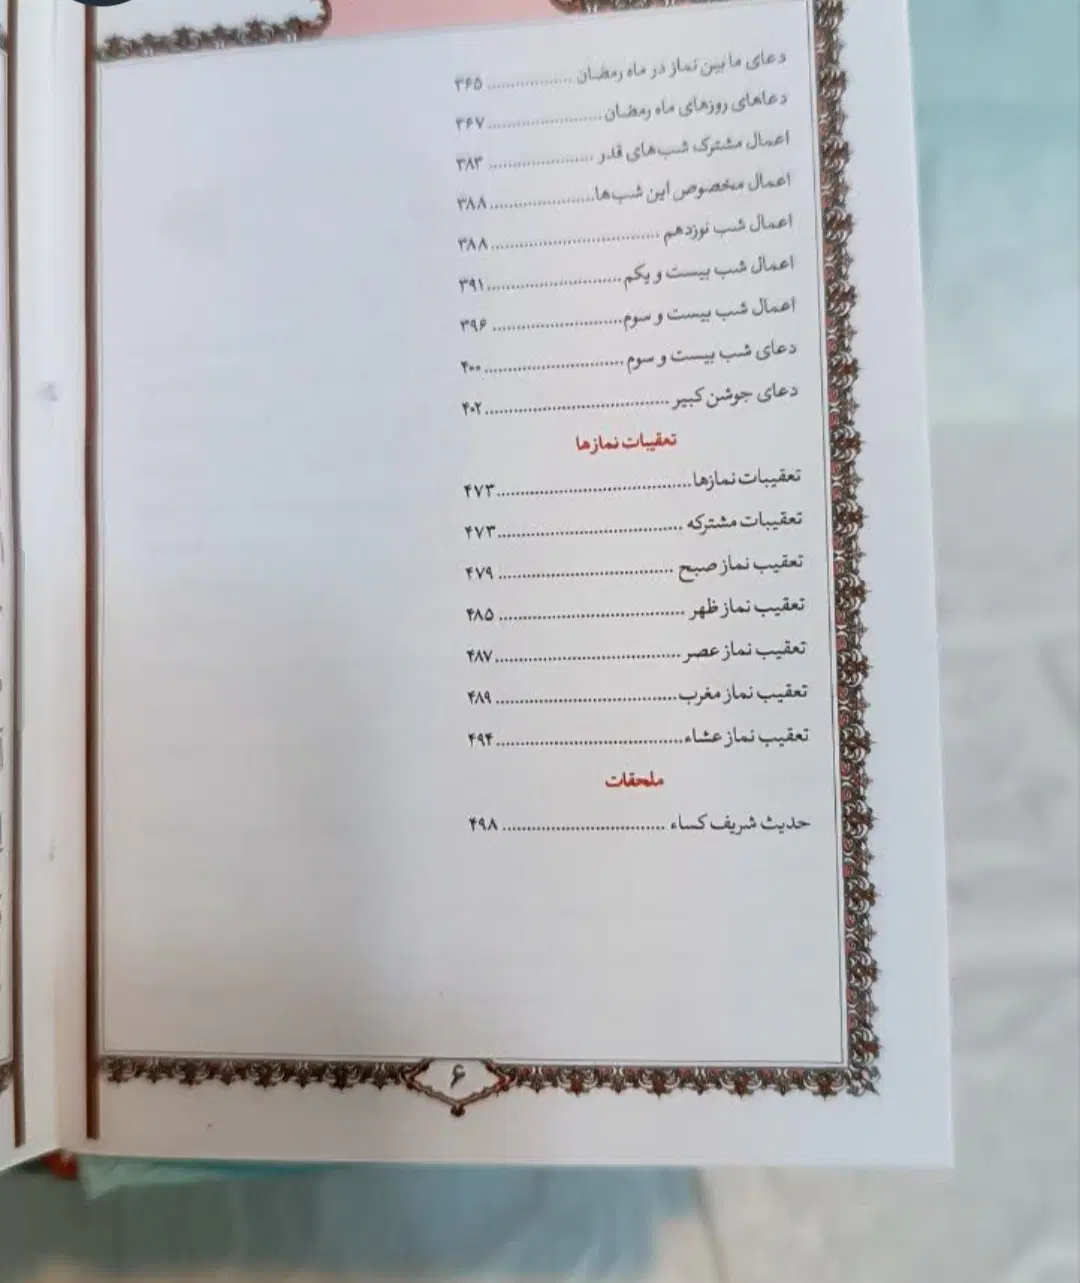 دعای ما بین نماز در ماه رمضان .................. ۳۶۵
دعاهای روزهای ماه رمضان ........................ ۳۶۷
اعمال مشترک شب‌های قدر ...................... ۳۸۳
اعمال مخصوص این شب‌ها ...................... ۳۸۸
اعمال شب نوزدهم .................................... ۳۸۸
اعمال شب بیست و یکم ............................. ۳۹۱
اعمال شب بیست و سوم ............................ ۳۹۶
دعای شب بیست و سوم .............................. ۴۰۰
دعای جوشن کبیر ....................................... ۴۰۲
تعقیبات نمازها
تعقیبات نمازها .......................................... ۴۷۳
تعقیبات مشترکه ........................................ ۴۷۳
تعقیب نماز صبح ...................................... ۴۷۹
تعقیب نماز ظهر ........................................ ۴۸۵
تعقیب نماز عصر ........................................ ۴۸۷
تعقیب نماز مغرب ....................................... ۴۸۹
تعقیب نماز عشاء ........................................ ۴۹۴
ملحقات
حدیث شریف کساء ................................... ۴۹۸
۶